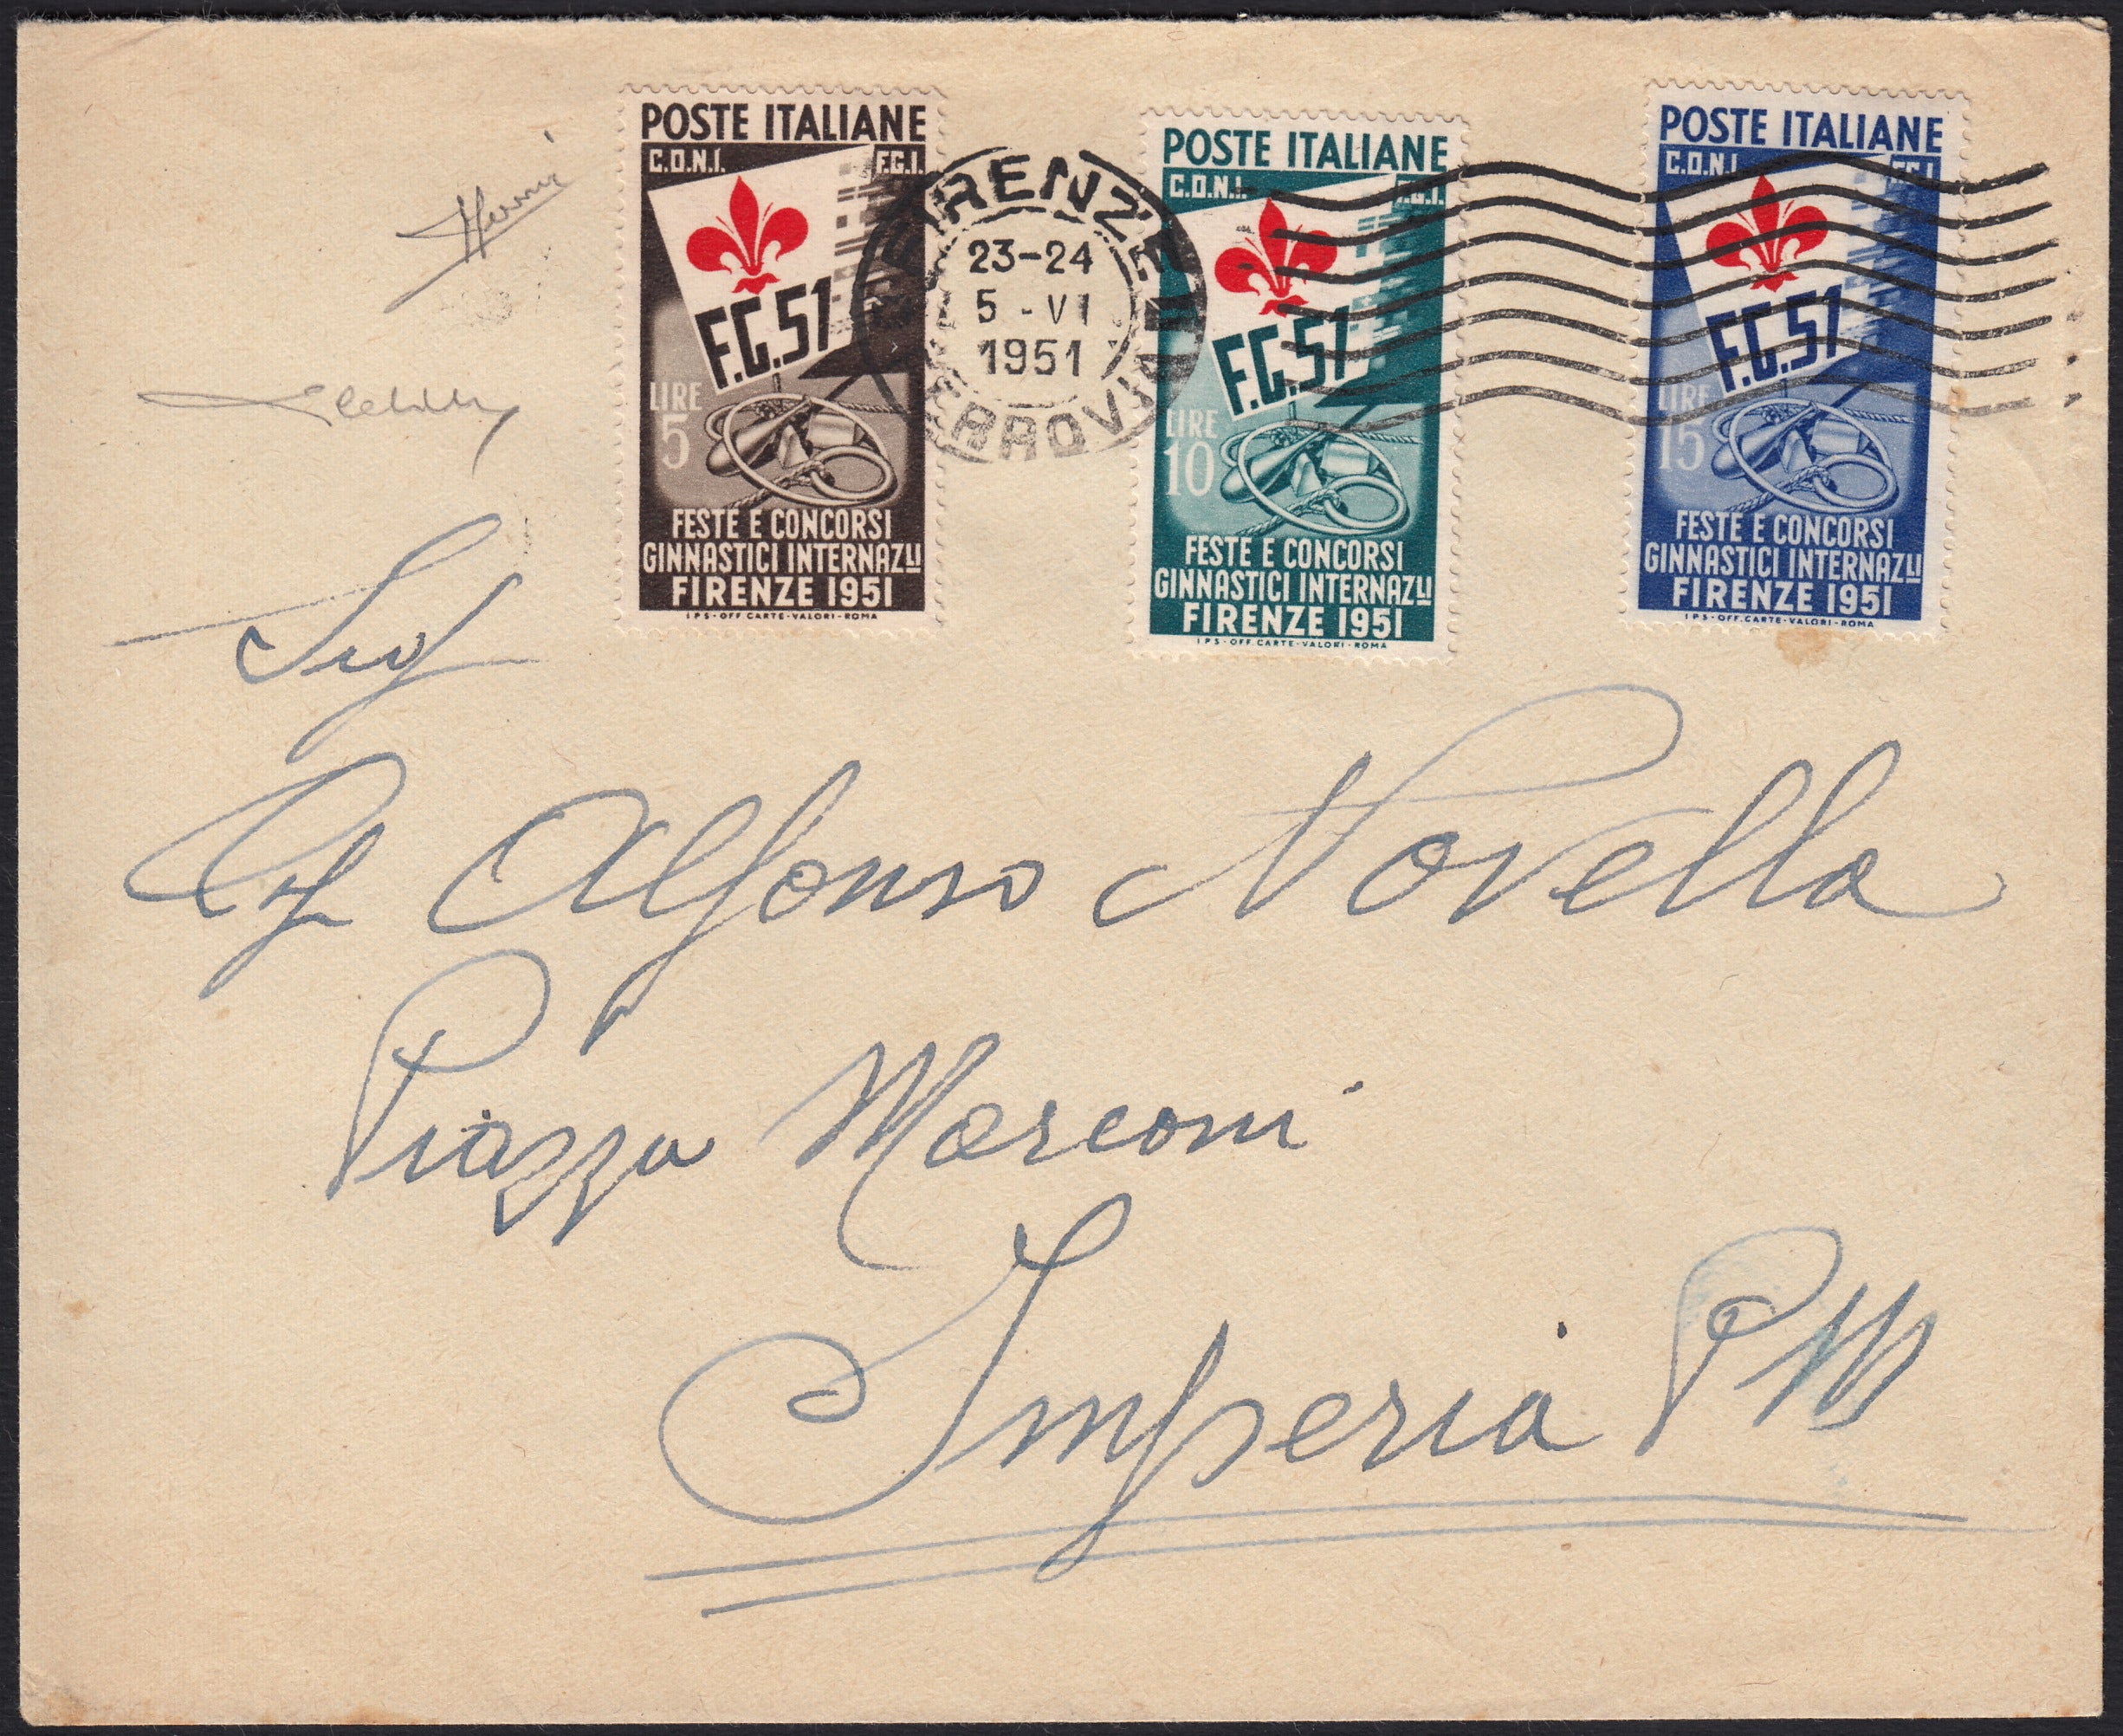 POSTE ITALIANE
C.O.N.I. F.G.I.
F.G.51
LIRE
5
FESTE E CONCORSI
GINNASTICI INTERNAZLI
FIRENZE 1951
IPS-OFF. CARTE-VALORI-ROMA
FIRENZE
23-24
5 - VI
1951
FERROVIA
POSTE ITALIANE
C.O.N.I. F.G.I.
F.G.51
LIRE
10
FESTE E CONCORSI
GINNASTICI INTERNAZLI
FIRENZE 1951
IPS-OFF. CARTE-VALORI-ROMA
POSTE ITALIANE
C.O.N.I. F.G.I.
F.G.51
LIRE
15
FESTE E CONCORSI
GINNASTICI INTERNAZLI
FIRENZE 1951
IPS-OFF. CARTE-VALORI-ROMA
Sig
Alfonso Novella
Piazza Marconi
Imperia PM